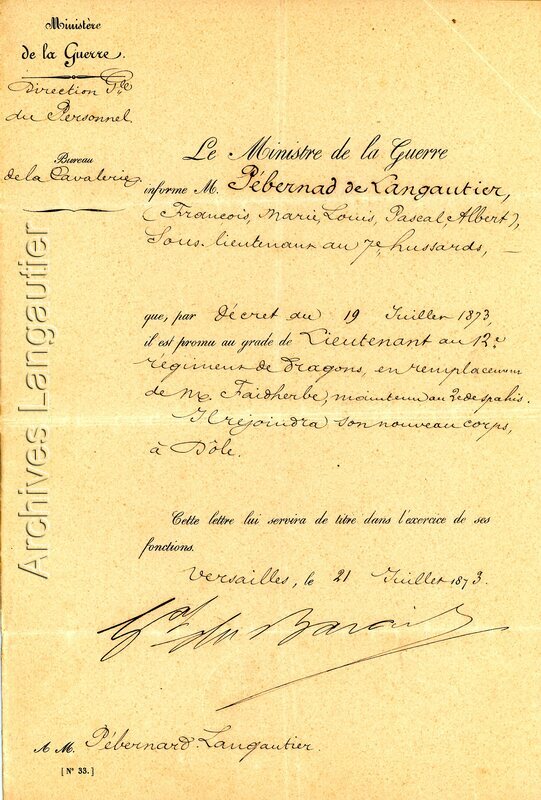 Ministère
de la Guerre.
Direction Gle
du Personnel
Bureau
de la Cavalerie
Le Ministre de la Guerre
informe M. Pébernad de Langautier,
(François, Marie, Louis, Pascal, Albert),
Sous-lieutenant au 7e hussards,
que, par décret du 19 Juillet 1873,
il est promu au grade de Lieutenant au 12e
régiment de Dragons, en remplacement
de M. Faidherbe, maintenu au 2e de spahis.
Il rejoindra son nouveau corps,
à Dôle.
Cette lettre lui servira de titre dans l'exercice de ses
fonctions.
Versailles, le 21 Juillet 1873.
Gal du Barail
A M. Pébernard-Langautier.
[ N° 33. ]
Archives Langautier